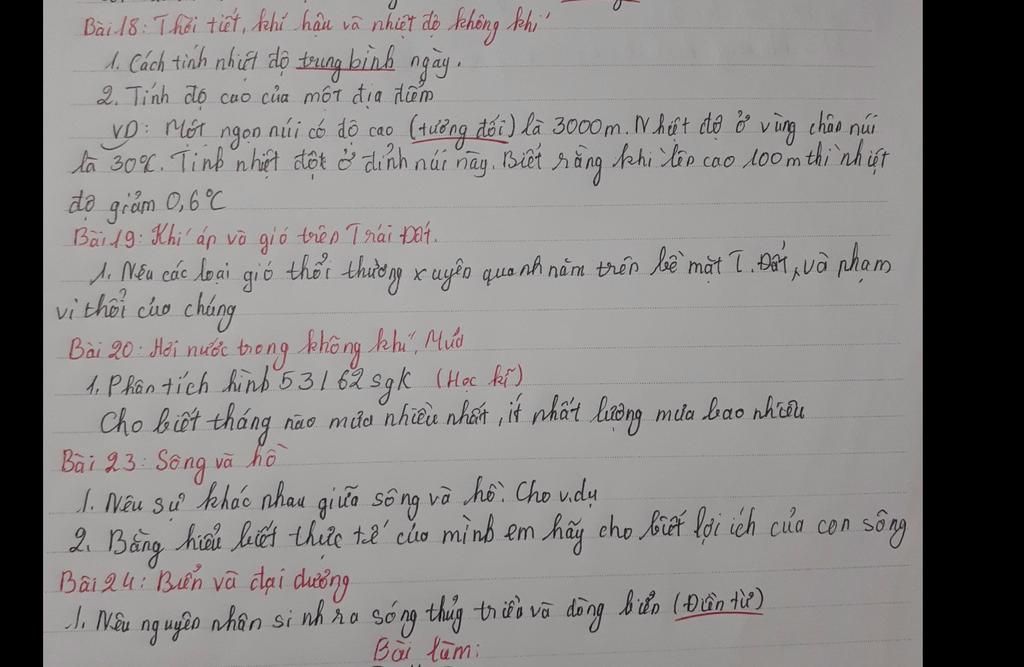 Bài 18: Thời tiết, khí hậu và nhiệt độ không khí
1. Cách tính nhiệt độ trung bình ngày.
2. Tính độ cao của một địa điểm
VD: Một ngọn núi có độ cao (tương đối) là 3000m. Nhiệt độ ở vùng chân núi
là 30°C. Tính nhiệt độ ở đỉnh núi này. Biết rằng khi lên cao 100m thì nhiệt
độ giảm 0,6°C
Bài 19: Khí áp và gió trên Trái Đất.
1. Nêu các loại gió thổi thường xuyên quanh năm trên bề mặt T. Đất, và phạm
vi thổi của chúng
Bài 20: Hơi nước trong không khí, Mưa
1. Phân tích hình 53/62 sgk (Học kĩ)
Cho biết tháng nào mưa nhiều nhất, ít nhất lượng mưa bao nhiêu
Bài 23: Sông và hồ
1. Nêu sự khác nhau giữa sông và hồ. Cho v.dụ
2. Bằng hiểu biết thực tế của mình em hãy cho biết lợi ích của con sông
Bài 24: Biển và đại dương
1. Nêu nguyên nhân sinh ra sóng thủy triều và dòng biển (Điền từ)
Bài làm: